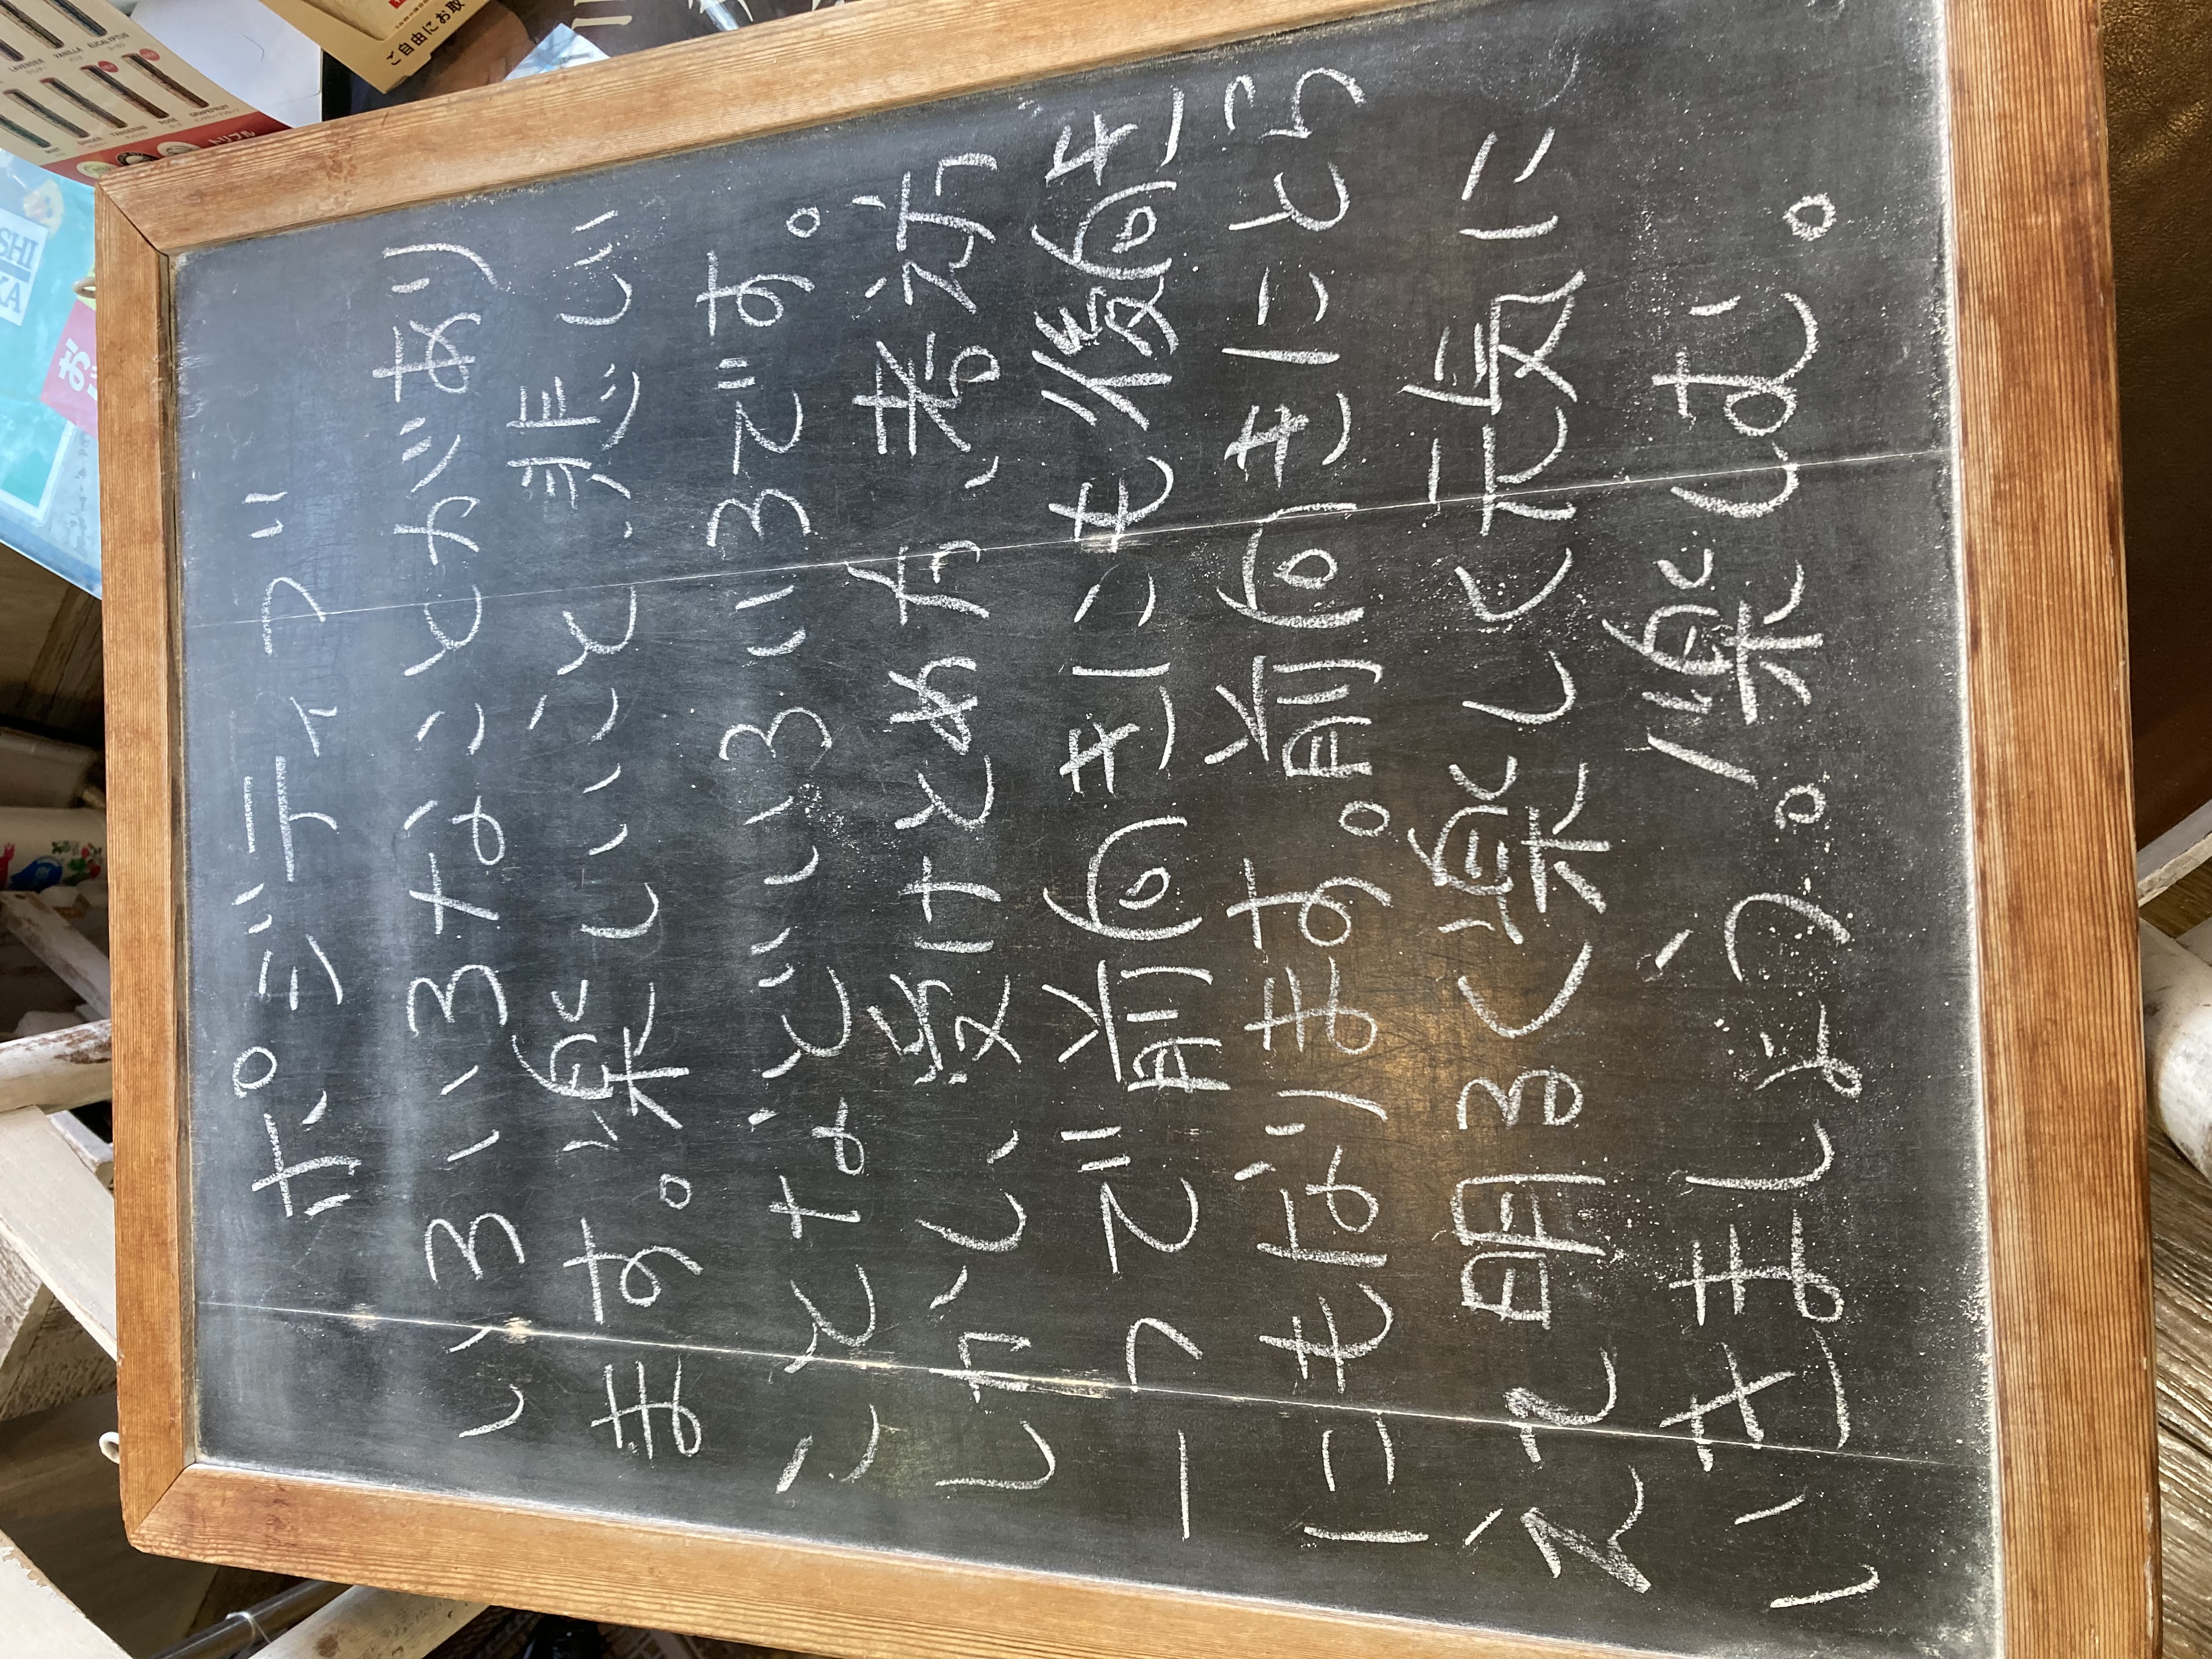 ポジティブ
いろいろなことがあり
ます。楽しいこと、悲しい
ことなどいろいろです。
しかし、受けとめ方、考え方
一つで前向きにも後向き
にもなります。前向きにとら
えて明るく楽しく元気に
いきましょう。楽しむ。
ご自由にお取
LAVENDER VANILLA EUCALYPTUS
MINT GINGER TANGERINE ROSE GRAPEFRUIT